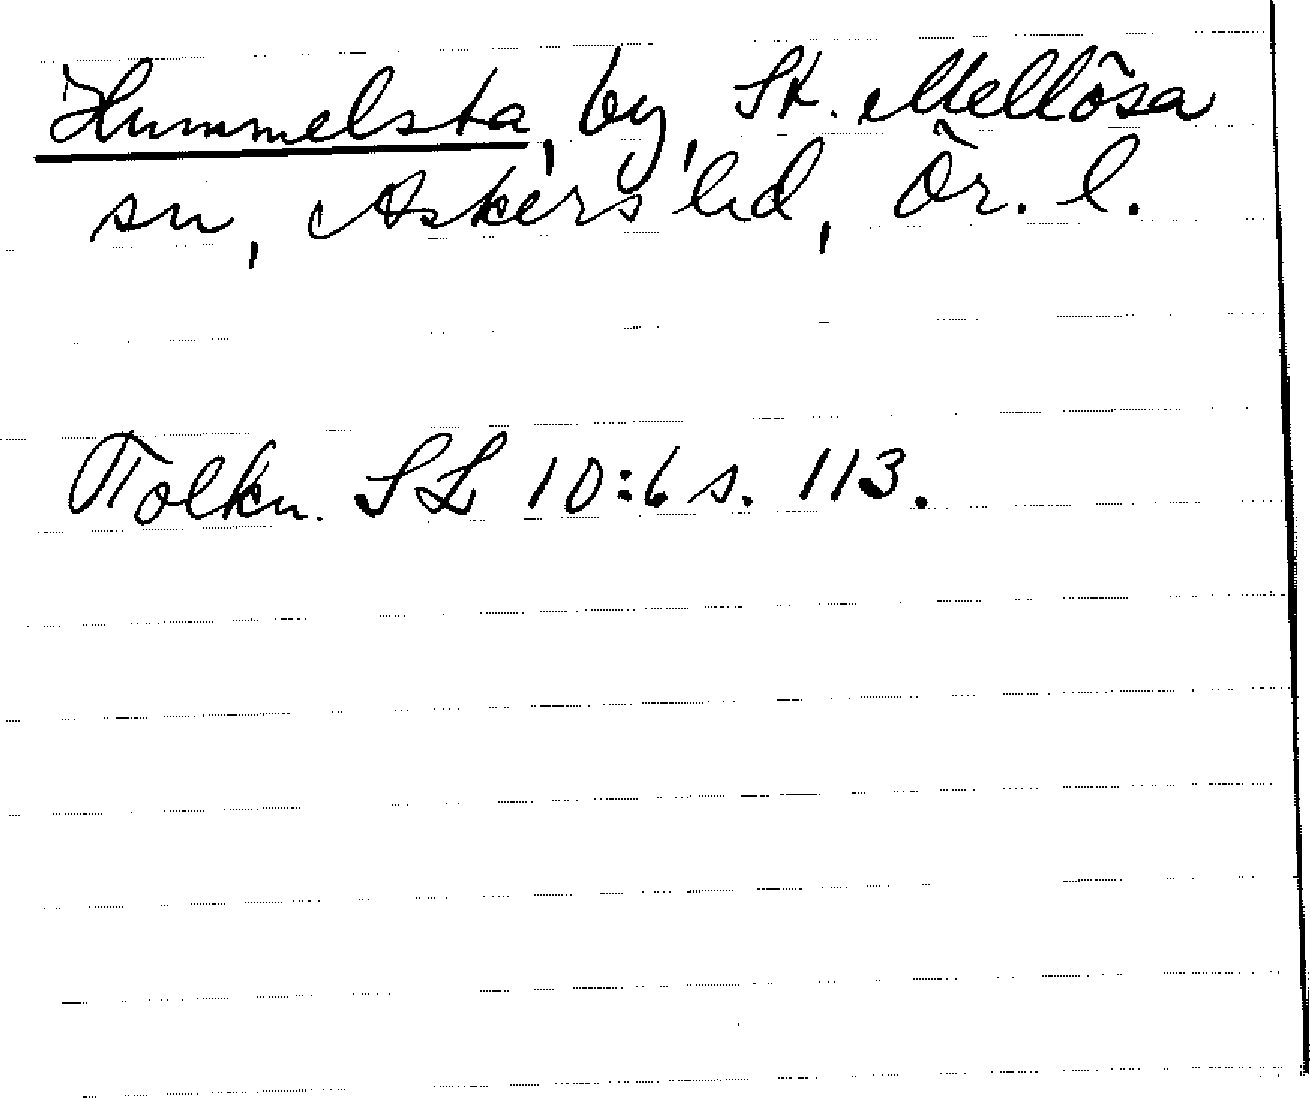 Hummelsta, by, St. Mellösa
sn, Askers hd, Ör. l.
Tolkn. SL 10:6 s. 113.